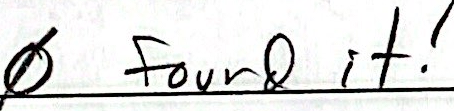 Ø Found it!